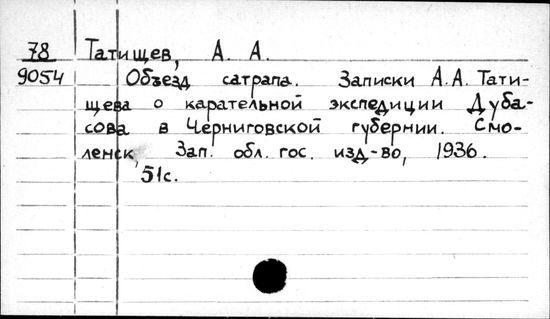 78 Татищев, А. А.
9054 Объезд сатрапа. Записки А.А. Тати-
щева о карательной экспедиции Дуба-
сова в Черниговской губернии. Смо-
ленск, Зап. обл. гос. изд-во, 1936.
51с.